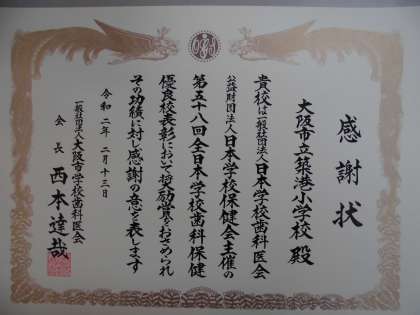 感謝状
大阪市立築港小学校 殿
貴校は一般社団法人日本学校歯科医会
公益財団法人日本学校保健会主催の
第五十八回全日本学校歯科保健
優良校表彰において奨励賞をおさめられ
その功績に対し感謝の意を表します
令和二年二月十三日
一般社団法人大阪市学校歯科医会
会長 西本達哉